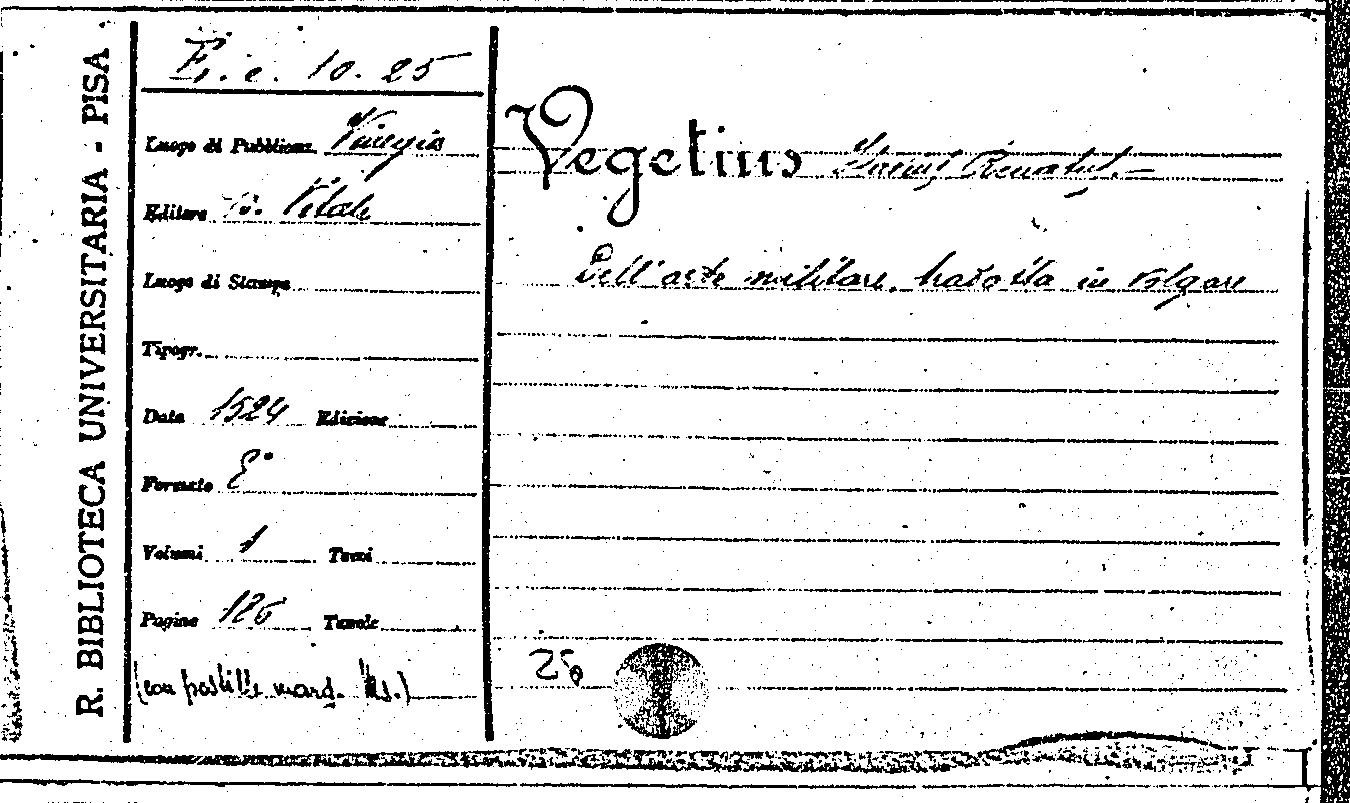 R. BIBLIOTECA UNIVERSITARIA - PISA
E. c. 10. 25
Luogo di Pubblicaz. Vinegia
Editore B. Vitale
Luogo di Stampa
Tipogr.
Data 1524 Edizione
Formato 8°
Volumi 1 Tomi
Pagine 126 Tavole
(con postille marg. Ms.)
Vegetius Renatus. —
Dell'arte militare, tradotta in volgare